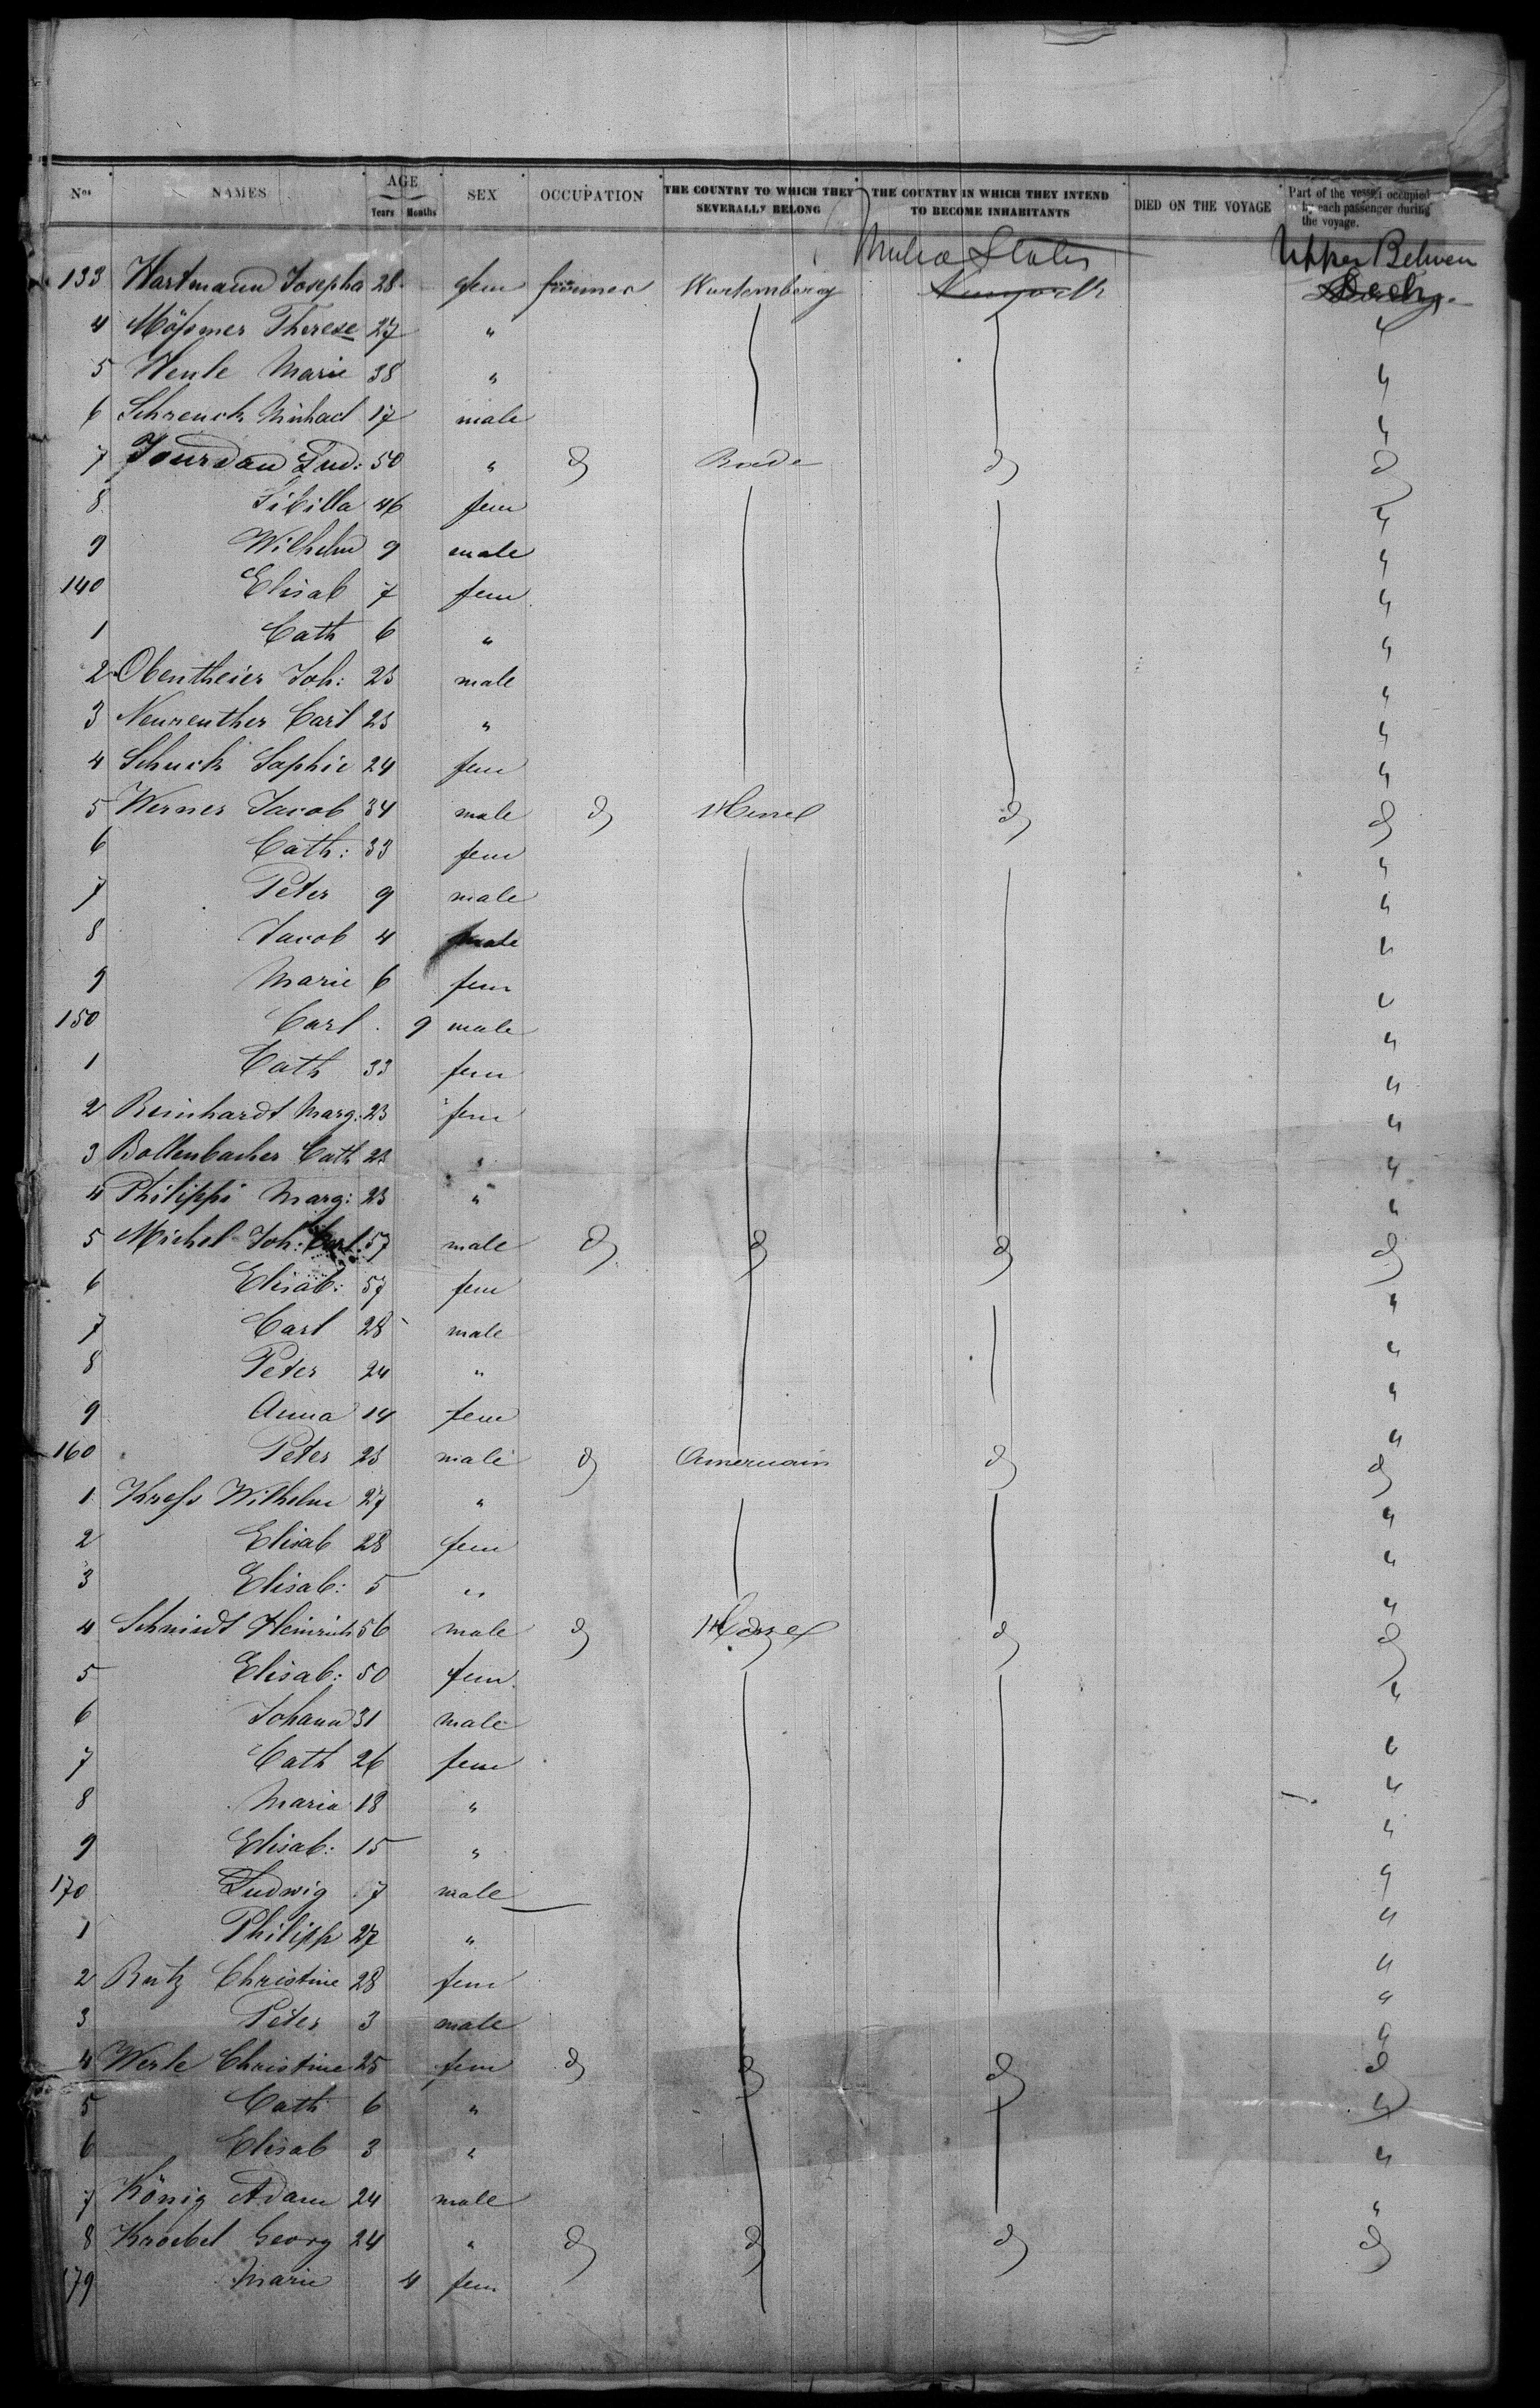 Nos NAMES AGE Years Months SEX OCCUPATION THE COUNTRY TO WHICH THEY SEVERALLY BELONG THE COUNTRY IN WHICH THEY INTEND TO BECOME INHABITANTS DIED ON THE VOYAGE Part of the vessel occupied by each passenger during the voyage.
States Upper Between
133 Hartmann Josepha 28 fem farmer Wurtemberg Newyork Deck
4 Mößmer Therese 27 " "
5 Wenle Marie 38 " "
6 Schrenck Michael 17 male "
7 Jourdan Lud: 50 " d Bade d d
8 Sibilla 46 fem "
9 Wilhelm 9 male "
140 Elisab 7 fem "
1 Cath 6 " "
2 Obentheier Joh: 23 male "
3 Neureuther Carl 23 " "
4 Schuck Sophie 24 fem "
5 Werner Jacob 34 male d Hessel d d
6 Cath: 33 fem "
7 Peter 9 male "
8 Jacob 4 male "
9 Marie 6 fem "
150 Carl 9 male "
1 Cath 33 fem "
2 Reinhardt Marg: 23 fem "
3 Bollenbacher Cath 23 " "
4 Philippi Marg: 23 " "
5 Michel Joh: Carl 57 male d d d d
6 Elisab: 57 fem "
7 Carl 28 male "
8 Peter 24 " "
9 Anna 14 fem "
160 Peter 23 male d Americain d d
1 Kreß Wilhelm 27 " "
2 Elisab 28 fem "
3 Elisab: 5 " "
4 Schmidt Heinrich 56 male d Hessel d d
5 Elisab: 50 fem "
6 Johann 31 male "
7 Cath 26 fem "
8 Maria 18 " "
9 Elisab: 15 " "
170 Ludwig 7 male "
1 Philipp 27 " "
2 Rutz Christine 28 fem "
3 Peter 3 male "
4 Werle Christine 25 fem d d d d
5 Cath 6 " "
6 Elisab 3 " "
7 König Adam 24 male "
8 Kroebel Georg 24 " d d d d
179 Marie 4 fem